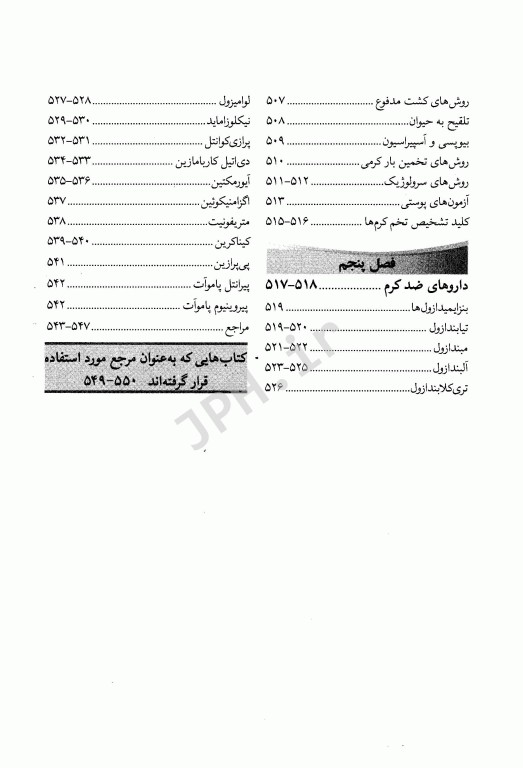 روش‌های کشت مدفوع ................................ ۵۰۷
تلقیح به حیوان ................................ ۵۰۸
بیوپسی و آسپیراسیون ................................ ۵۰۹
روش‌های تخمین بار کرمی ................................ ۵۱۰
روش‌های سرولوژیک ................................ ۵۱۱-۵۱۲
آزمون‌های پوستی ................................ ۵۱۳
کلید تشخیص تخم کرم‌ها ................................ ۵۱۵-۵۱۶
فصل پنجم
داروهای ضد کرم ................................ ۵۱۷-۵۱۸
بنزایمیدازول‌ها ................................ ۵۱۹
تیابندازول ................................ ۵۱۹-۵۲۰
مبندازول ................................ ۵۲۱-۵۲۲
آلبندازول ................................ ۵۲۳-۵۲۵
تری‌کلابندازول ................................ ۵۲۶
لوامیزول ................................ ۵۲۷-۵۲۸
نیکلوزاماید ................................ ۵۲۹-۵۳۰
پرازی‌کوانتل ................................ ۵۳۱-۵۳۲
دی‌اتیل کاربامازین ................................ ۵۳۳-۵۳۴
آیورمکتین ................................ ۵۳۵-۵۳۶
اگزامنیکوئین ................................ ۵۳۷
متریفونیت ................................ ۵۳۸
کیناکرین ................................ ۵۳۹-۵۴۰
پی‌پرازین ................................ ۵۴۱
پیرانتل پاموآت ................................ ۵۴۲
پیروینیوم پاموآت ................................ ۵۴۲
مراجع ................................ ۵۴۳-۵۴۷
کتاب‌هایی که به‌عنوان مرجع مورد استفاده
قرار گرفته‌اند ۵۴۹-۵۵۰
JPH.ir